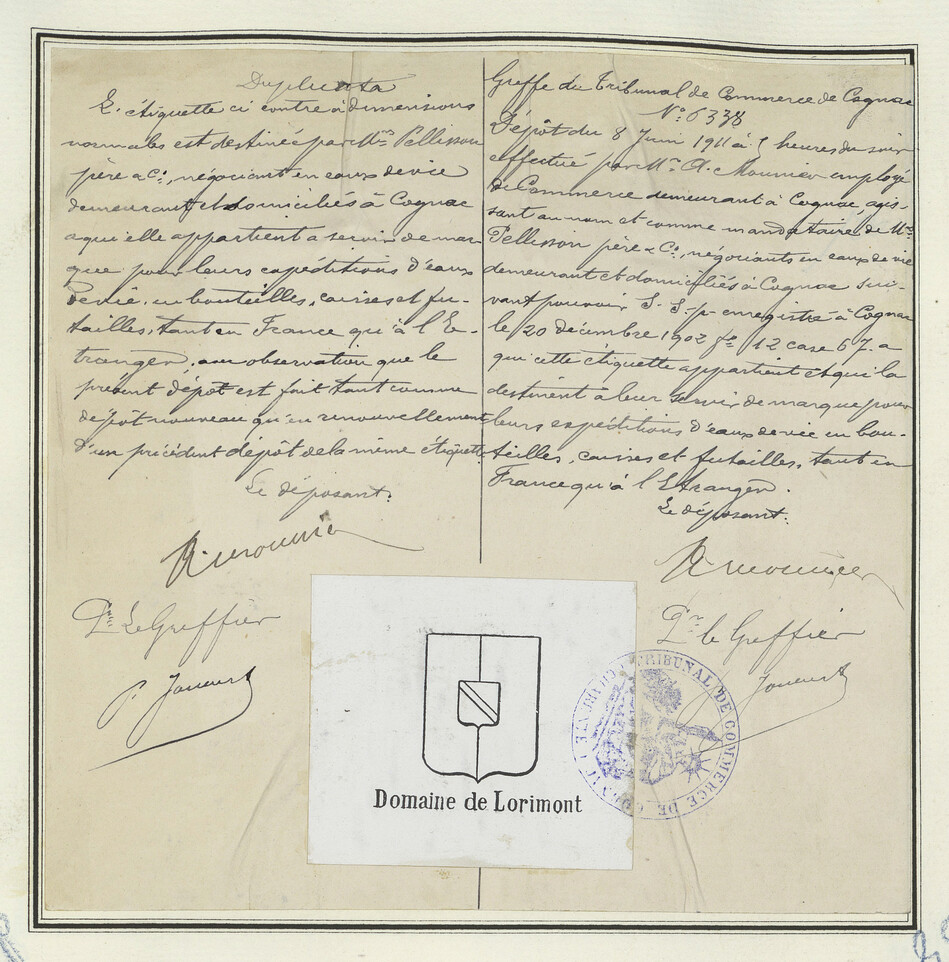 Duplicata
L'étiquette ci contre à dimensions
normales est destinée par Mrs Pellisson
père & Cie, négociant en eaux de vie
demeurant et domiciliés à Cognac
a qu'elle appartient a servir de mar
que pour leurs expéditions d'eaux
de vie, en bouteilles, caisses et fu-
tailles, tant en France qu'à l'E-
tranger, observation que le
présent dépôt est fait tant comme
dépôt nouveau qu'en renouvellement
d'un précédent dépôt de la même étiquette
Le déposant:
A. Mounier
Le Greffier
P. Jouvert
Greffe du Tribunal de Commerce de Cognac
No 6338
Dépôt du 8 Juin 1911 à 5 heures du soir
effectué par Mr A. Mounier employé
de Commerce demeurant à Cognac, agis-
sant au nom et comme mandataire de Mrs
Pellisson père & Cie, négociants en eaux de vie
demeurant et domiciliés à Cognac sui-
vant pouvoir S. S. p. enregistré à Cognac
le 20 décembre 1902 fo 12 case 67. a
qui cette étiquette appartient et qui la
destinent à leur servir de marque pour
leurs expéditions d'eaux de vie en bou-
teilles, caisses et futailles, tant en
France qu'à l'Etranger.
Le déposant:
A Mounier
Pr le Greffier
Jouvert
Domaine de Lorimont
TRIBUNAL DE COMMERCE DE COGNAC